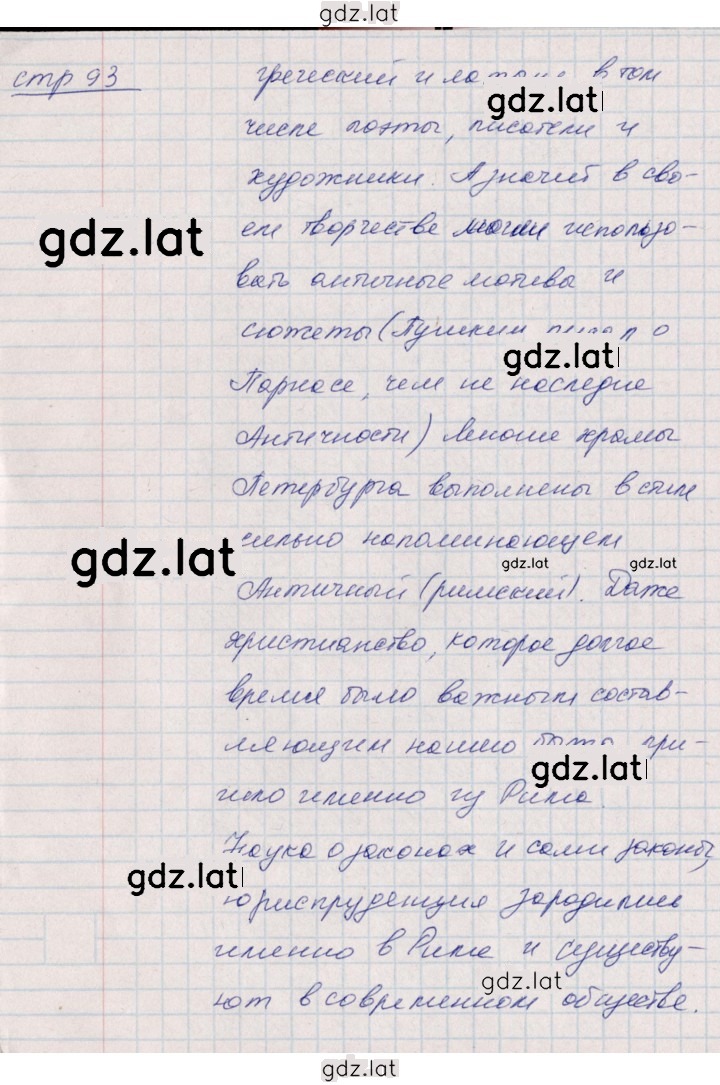 gdz.lat
стр 93
греческий и в том
gdz.lat
числе поэты, писатели и
художники. А значит в сво-
gdz.lat
ем творчестве могли использо-
вать античные мотивы и
сюжеты (Пушкин писал о
gdz.lat
Парнасе, чем не наследие
Античности) Многие храмы
Петербурга выполнены в стиле
gdz.lat
сильно напоминающем
gdz.lat gdz.lat
Античный (римский). Даже
христианство, которое долгое
время было важным состав-
ляющим нашего быта, при-
gdz.lat
шло именно из Рима.
Наука о законах и сами законы,
gdz.lat
юриспруденция зародились
именно в Риме и существу-
gdz.lat
ют в современном обществе.
gdz.lat